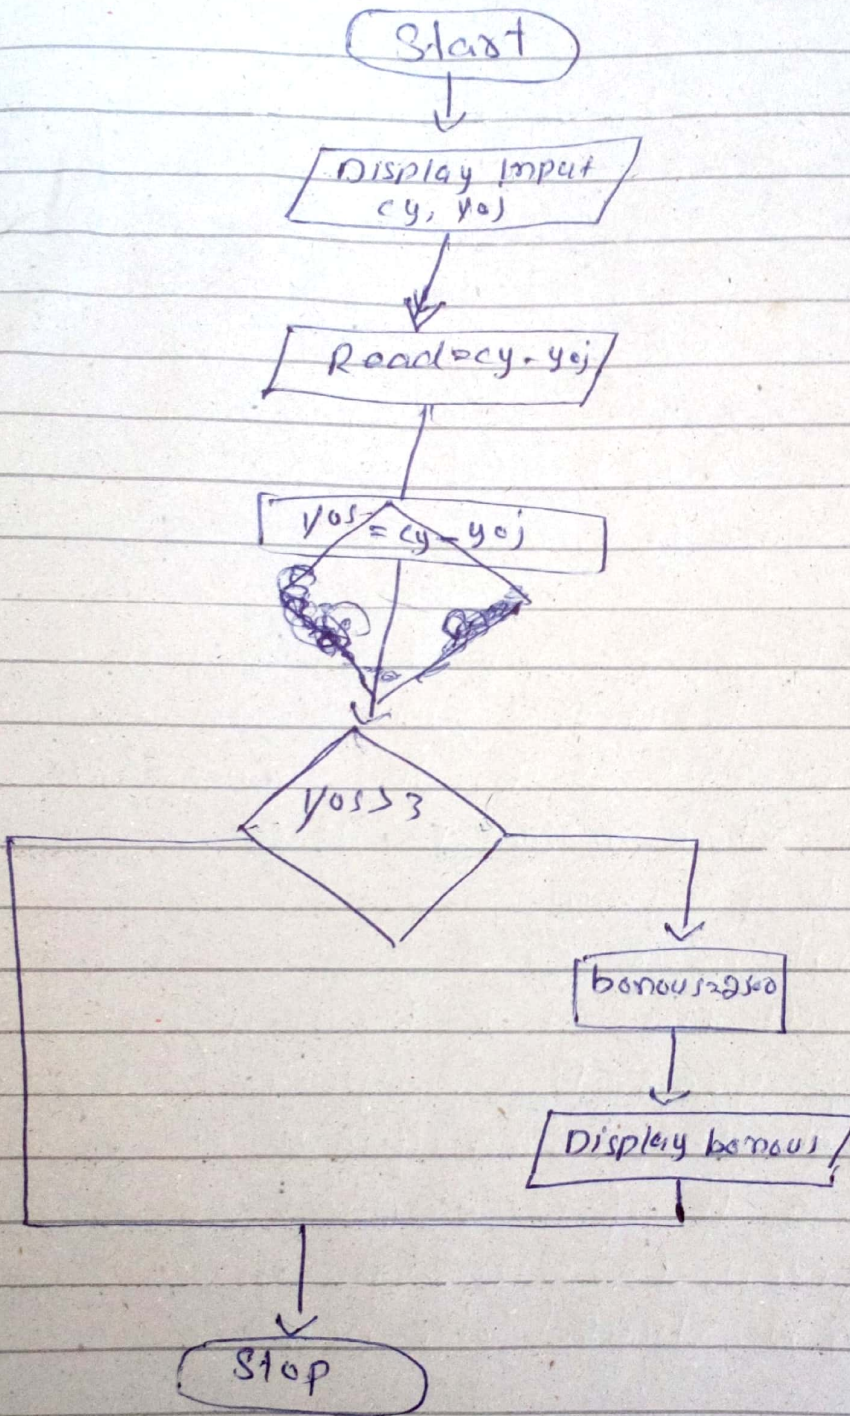 Start
Display Input
cy, yoj
Read=cy - yoj
yos
= cy - yoj
yos > 3
bonous=2500
Display bonous
Stop